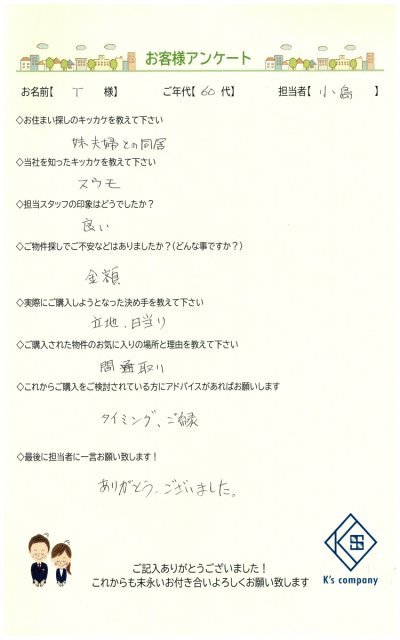 お客様アンケート
お名前【 T 様】 ご年代【 60 代】 担当者【 小島 】
◇お住まい探しのキッカケを教えて下さい
妹夫婦との同居
◇当社を知ったキッカケを教えて下さい
スウモ
◇担当スタッフの印象はどうでしたか？
良い
◇ご物件探しでご不安などはありましたか？(どんな事ですか？)
金額
◇実際にご購入しようとなった決め手を教えて下さい
立地、日当り
◇ご購入された物件のお気に入りの場所と理由を教えて下さい
間通取り
◇これからご購入をご検討されている方にアドバイスがあればお願いします
タイミング、ご縁
◇最後に担当者に一言お願い致します！
ありがとう、ございました。
ご記入ありがとうございました！
これからも末永いお付き合いよろしくお願い致します
K's company